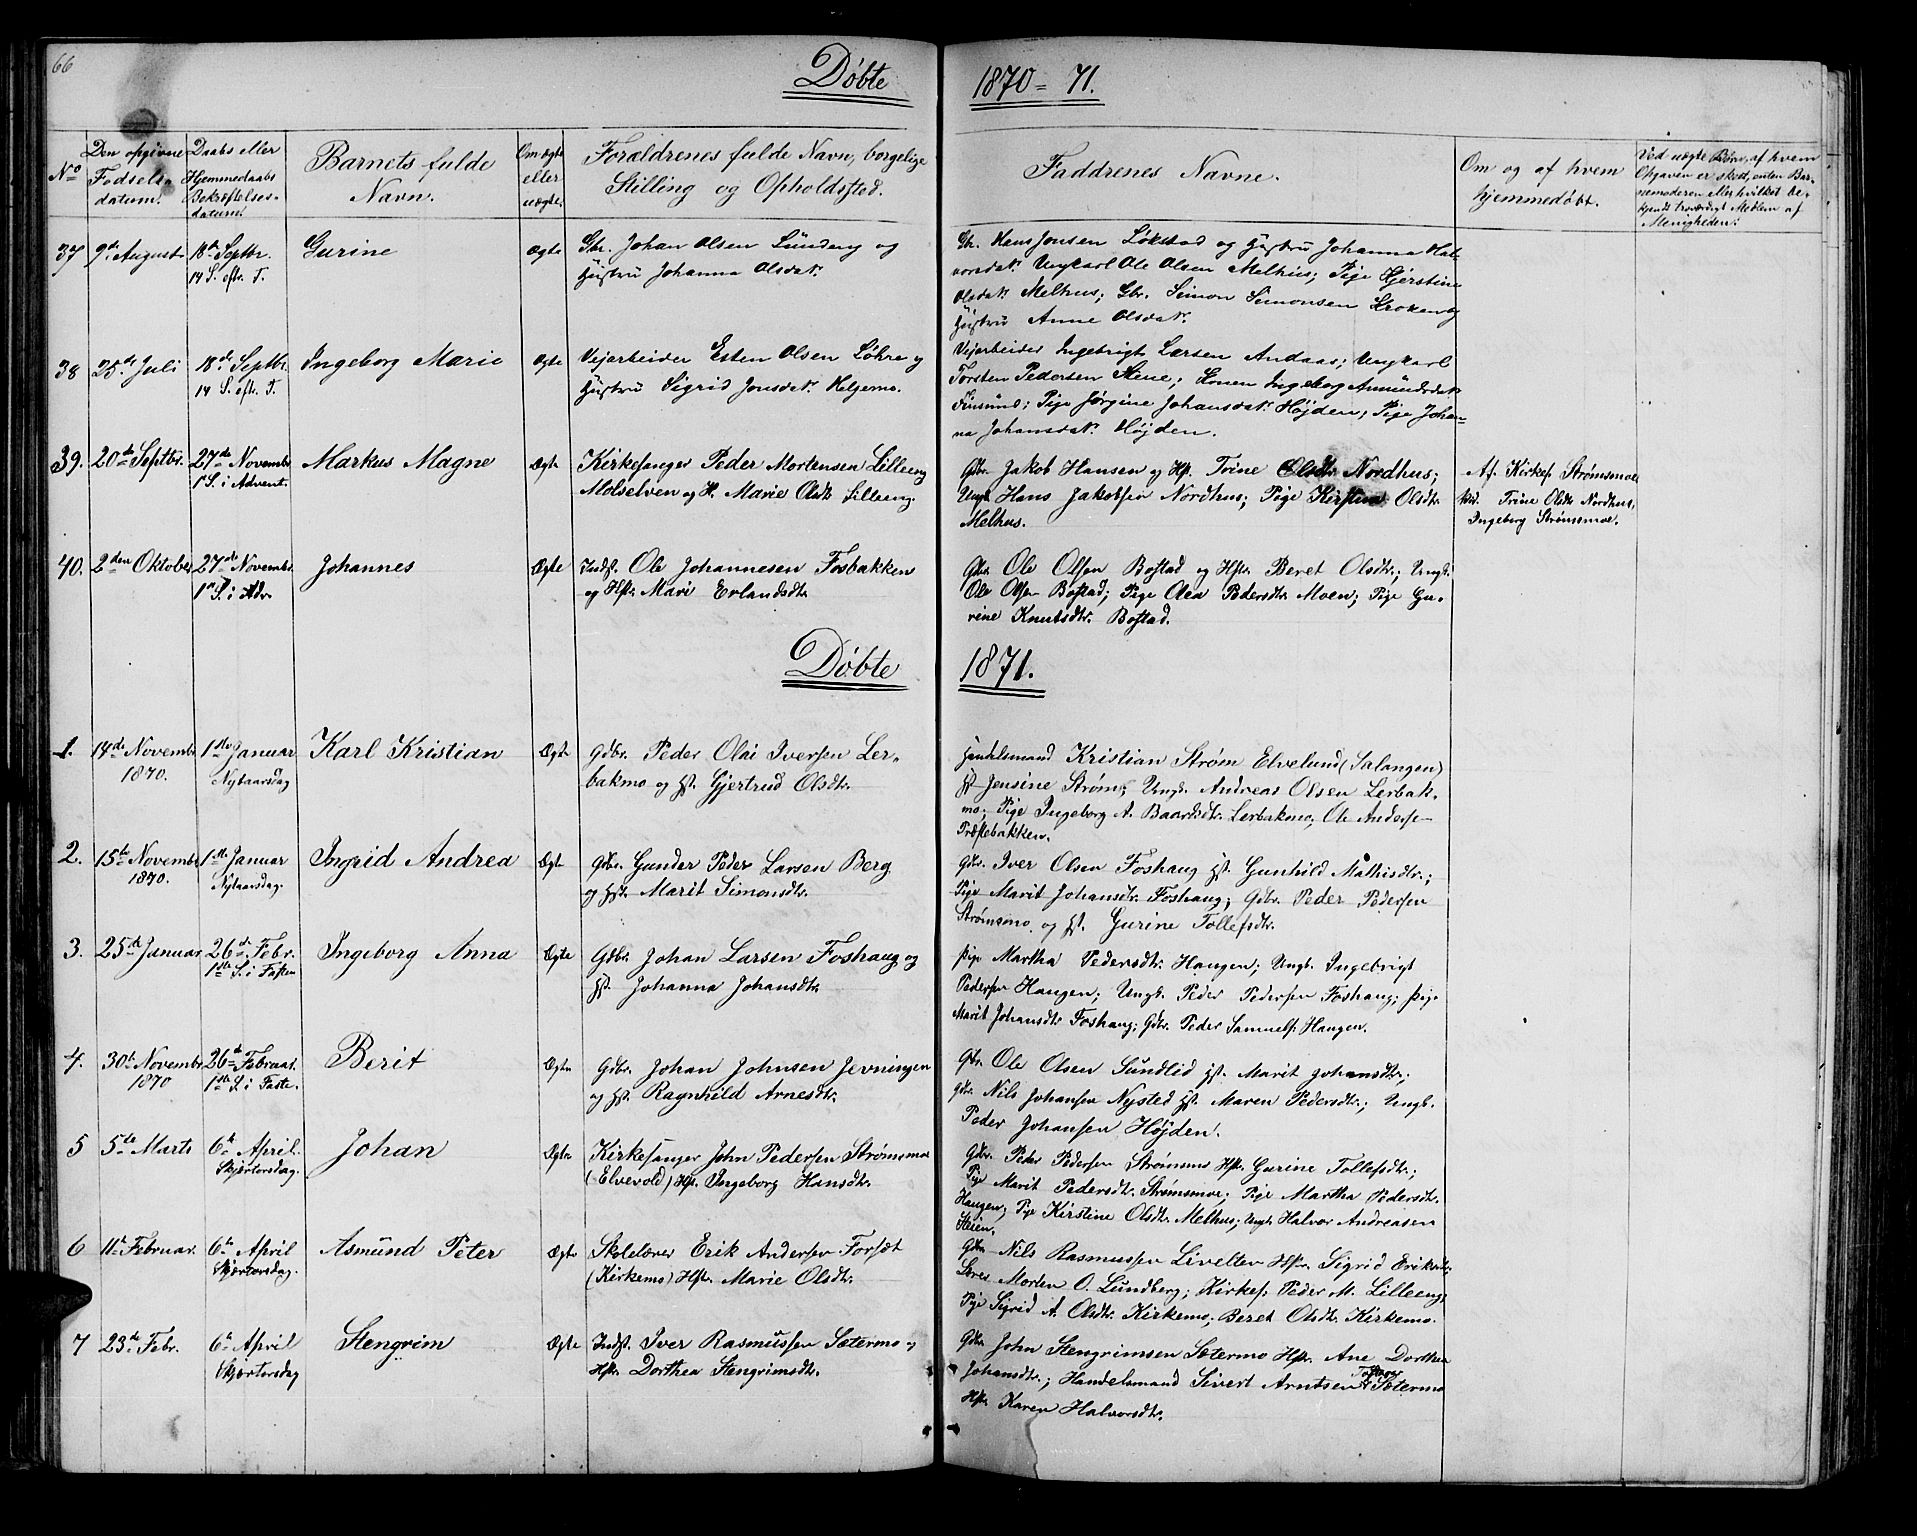 66
Døbte
1870=71.
No
Den opgivne
Fødsels-
datum.
Daabs eller
Hjemmedaabs
Bekræftelses-
datum.
Barnets fulde
Navn.
Om ægte
eller
uægte.
Forældrenes fulde Navn, borgelige
Stilling og Opholdssted.
Faddrenes Navne.
Om og af hvem
hjemmedøbt.
Ved uægte Børn, af hvem
Opgaven er skeet, enten Bar-
nemoderen eller hvilket be-
kjendt troværdigt Medlem af
Menigheden.
37
9de August
18de Septbr.
14 S. eftr. T.
Gurine
Ægte
Gbr. Johan Olsen Lundeng og
Hustru Johanna Olsdatr.
Gbr. Hans Jonsen Løkstad og Hustru Johanna Hal-
vorsdatr. Ungkarl Ole Olsen Melhus; Pige Kjerstine
Olsdatr. Melhus; Gbr. Simon Simonsen Kroken og
Hustru Anne Olsdatr.
38
25de Juli
18de Septbr.
14 S. eftr. T.
Ingeborg Marie
Ægte
Vejarbeider Esten Olsen Løhre og
Hustru Sigrid Jonsdatr. Helgemo.
Vejarbeider Ingebrigt Larsen Andaas; Ungkarl
Torsten Pedersen Stene; Konen Ingeborg Amundsdatr.
Finsund; Pige Jørgine Johansdatr. Højden; Pige Johan-
na Johansdatr. Højden.
39.
20de Septbr.
27de Novembr.
1 S. i Advent.
Markus Magne
Ægte
Kirkesanger Peder Mortensen Lilleeng
Molselven og H. Marie Olsdtr. Lilleeng.
Gbr. Jakob Hansen og Hst. Trine Olsdtr. Nordhus;
Ungk. Hans Jakobsen Nordhus; Pige Kirstine Olsdtr.
Melhus.
Af Kirkes. Strømsmoe
Trine Olsdtr. Nordhus,
Ingeborg Strømsmoe.
40.
2den Oktober
27de Novembr.
1 S. i Adv.
Johannes
Ægte
Indst. Ole Johannesen Fosbakken
og Hst. Mari Erlandsdtr.
Gbr. Ole Olsen Bostad og Hst. Beret Olsdtr.; Ungk.
Ole Olsen Bostad; Pige Olea Pedersdtr. Moen; Pige Gu-
rine Knutsdtr. Bostad.
Døbte
1871.
1.
14de Novembr
1870.
1ste Januar
Nytaarsdag
Karl Kristian
Ægte
Gdbr. Peder Olai Iversen Ler-
bakmo og Hst. Gjertrud Olsdtr.
Handelsmand Kristian Strøm Elvelund (Salangen)
Hst. Jensine Strøm; Ungk. Andreas Olsen Lerbak-
mo; Pige Ingeborg A. Baardsdtr. Lerbakmo; Ole Anderse-
Præstebakken.
2.
15de Novembr
1870.
1ste Januar
Nytaarsdag.
Ingrid Andrea
Ægte
Gdbr. Gunder Peder Larsen Berg
og Hst. Marit Simonsdtr.
Gdbr. Iver Olsen Foshaug Hst. Gunhild Mathisdtr.;
Pige Marit Johansdtr. Foshaug; Gdbr. Peder Pedersen
Strømsmo og Hst. Gurine Tollefsdtr.
3.
25de Januar
26de Febr.
1ste S. i Fasten
Ingeborg Anna
Ægte
Gdbr. Johan Larsen Foshaug og
Hst. Johanna Johansdtr.
Pige Martha Pedersdtr. Haugen; Ungk. Ingebrigt
Pedersen Haugen; Ungk. Peder Pedersen Foshaug; Pige
Marit Johansdtr. Foshaug; Gdbr. Peder Samuels. Haugen.
4.
30te Novembr
1870
26de Februar.
1ste S. i Faste.
Berit
Ægte
Gdbr. Johan Johnsen Jevningen
og Hst. Ragnhild Arnesdtr.
Gbr. Ole Olsen Sundlid Hst. Marit Johansdtr.;
Gdbr. Nils Johansen Nysted Hst. Maren Pedersdtr.; Ungk.
Peder Johansen Højden.
5
5te Marts
6te April.
Skjærtorsdag.
Johan
Ægte
Kirkesanger John Pedersen Strømsmoe
(Elvevold) Hst. Ingeborg Hansdtr.
Gdbr. Peder Pedersen Strømsmo Hst. Gurine Tollefsdtr.;
Pige Marit Pedersdtr. Strømsmoe; Pige Martha Pedersdtr.
Haugen; Pige Kirstine Olsdtr. Melhus; Ungk. Halvor Andreasen
Steien.
6
11te Februar.
6te April
Skjærtorsdag.
Asmund Peter
Ægte
Skolelærer Erik Andersen Forsæt
(Kirkemo) Hst. Marie Olsdtr.
Gdbr. Nils Rasmussen Livelten Hst. Sigrid Eriksdtr.;
Morten O. Lundberg; Kirkes. Peder M. Lilleeng;
Pige Sigrid A. Olsdtr. Kirkemo; Beret Olsdtr. Kirkemo.
7
23de Febr.
6te April
Skjærtorsdag
Stengrim
Ægte
Indst. Iver Rasmussen Sætermo og
Hst. Dorthea Stengrimsdtr.
Gdbr. John Stengrimsen Sætermo Hst. Ane Dorthea
Johansdtr.; Handelsmand Sivert Arntsen Sætermo
Hst. Karen Halvorsdtr.